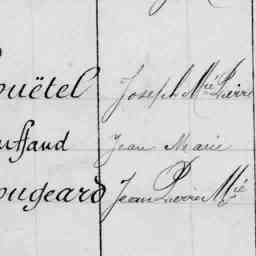 ouëtel Joseph Mie Pierre
uffaud Jean Marie
ougeard Jean Pierre Mie